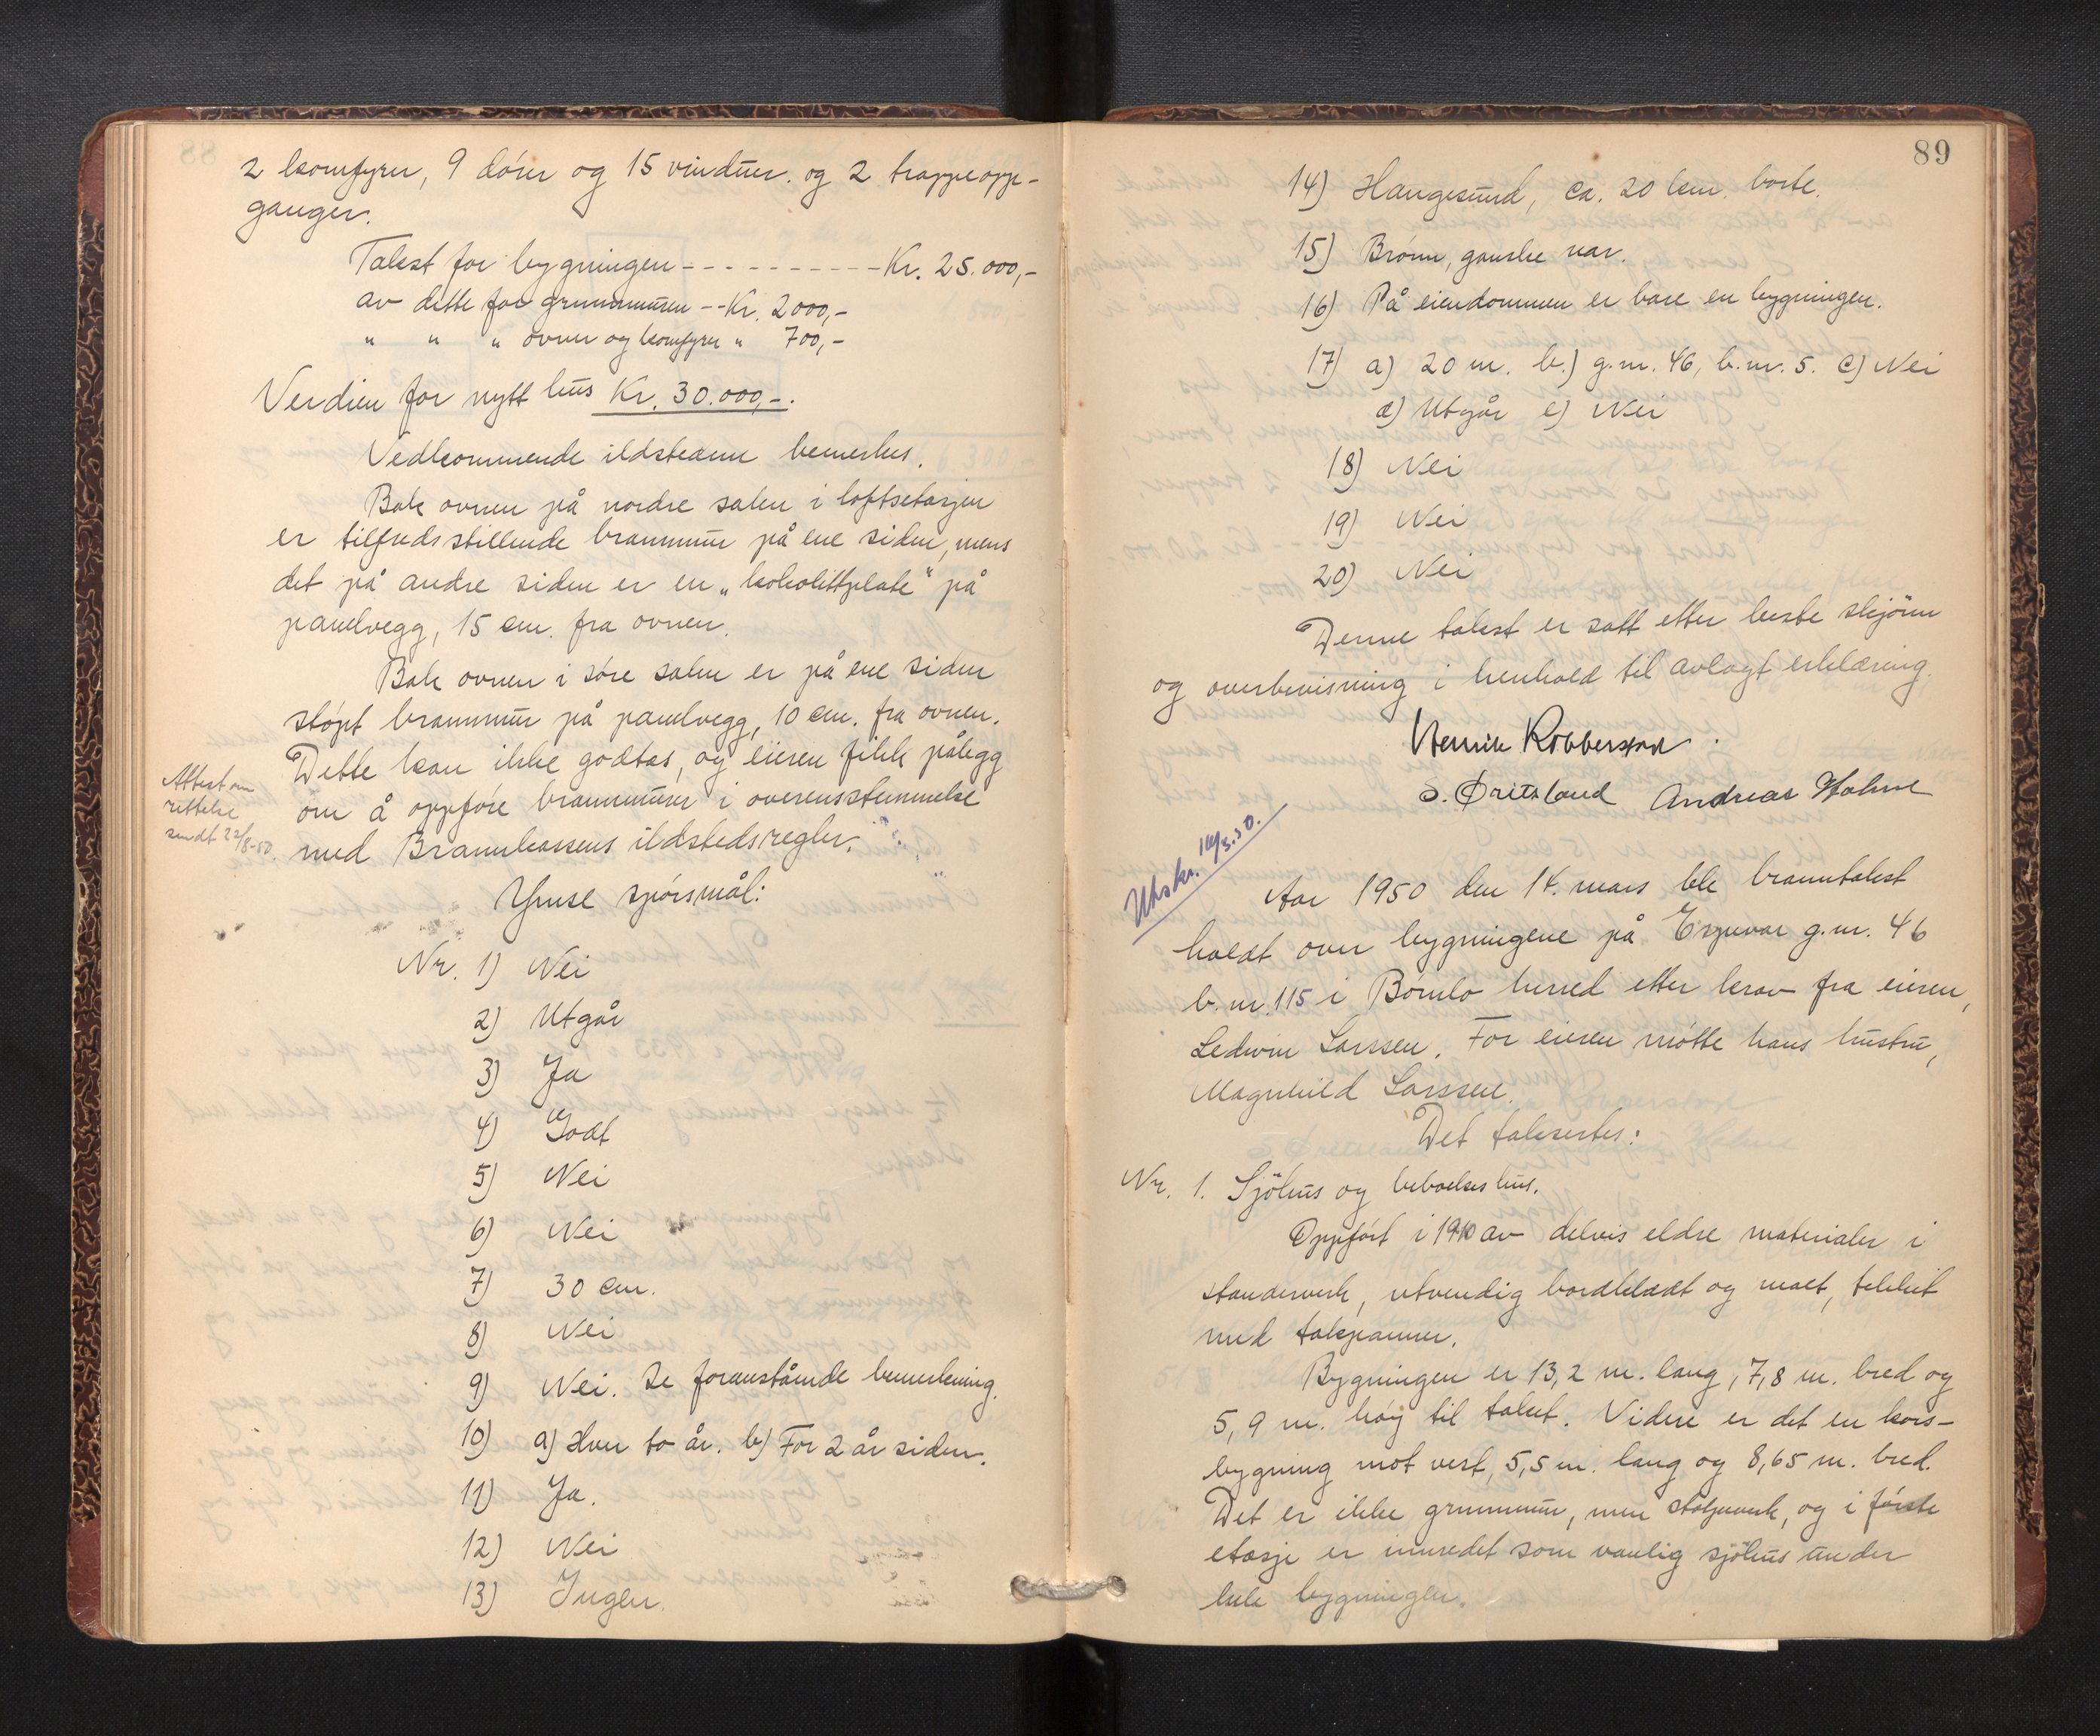 2 komfyrer, 9 dörer og 15 vinduer. og 2 trappeopp-
ganger.
Takst for bygningen - - - - - - - - - - Kr. 25.000,-
av dette for grunnmuren -- Kr. 2000,-
" " " ovner og komfyrer " 700,-
Verdien for nytt hus Kr. 30.000,-.
Vedkommende ildstedene bemerkes.
Bak ovnen på nordre salen i loftsetasjen
er tilfredsstillende brannmur på ene siden, mens
det på andre siden er en „kokolittplate" på
panelvegg, 15 cm. fra ovnen.
Bak ovnen i söre salen er på ene siden
stöpt brannmur på panelvegg, 10 cm. fra ovnen.
Dette kan ikke godtas, og eieren fikk pålegg
om å oppföre brannmurer i overensstemmelse
med Brannkassens ildstedsregler.
Attest om
rettelse
sendt 22/8-50.
Ymse spörsmål:
Nr. 1) Nei
2) Utgår
3) Ja
4) Godt
5) Nei
6) Nei
7) 30 cm.
8) Nei
9) Nei. Se foranstående bemerkning.
10) a) Hver to år. b) For 2 år siden.
11) Ja.
12) Nei
13) Ingen.
89
14) Haugesund, ca. 20 km. borte.
15) Brönn, ganske nær.
16) På eiendommen er bare en bygningen.
17) a) 20 m. b.) g.nr. 46, b.nr. 5. c) Nei
d) Utgår e) Nei
18) Nei
19) Nei
20) Nei
Denne takst er satt etter beste skjönn
og overbevisning i henhold til avlagt erklæring.
Henrik Robberstad.
S. Öritsland Andreas Holme
Utskr. 16/3.50.
Aar 1950 den 14. mars ble branntakst
holdt over bygningene på Espevær g.nr. 46
b.nr. 115 i Bömlo herred etter krav fra eieren,
Ledvin Larssen. For eieren mötte hans hustru,
Magnhild Larssen.
Det takseres:
Nr. 1. Sjöhus og beboelses hus.
Oppfört i 1910 av delvis eldre materialer i
standerverk, utvendig bordkledt og malt, tekket
med takpanner.
Bygningen er 13,2 m. lang, 7,8 m. bred og
5,9 m. höy til taket. Videre er det en kors-
bygning mot vest, 5,5 m. lang og 8,65 m. bred.
Det er ikke grunnmur, men stolpeverk, og i förste
etasje er innredet som vanlig sjöhus under
hele bygningen.